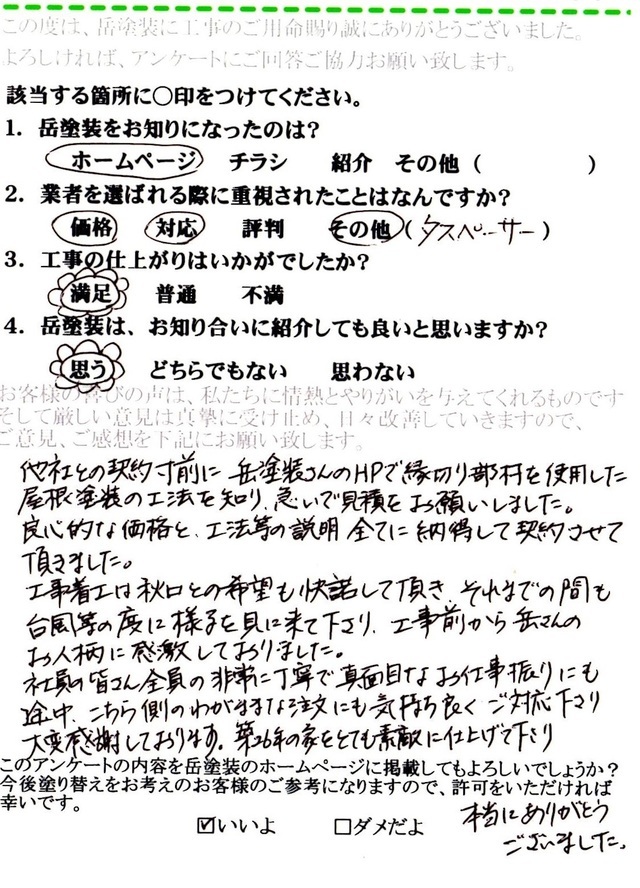 この度は、岳塗装に工事のご用命賜り誠にありがとうございました。
よろしければ、アンケートにご回答ご協力お願い致します。
該当する箇所に〇印をつけてください。
1．岳塗装をお知りになったのは？
ホームページ　チラシ　紹介　その他（　　　　）
2．業者を選ばれる際に重視されたことはなんですか？
価格　対応　評判　その他（タスペーサー）
3．工事の仕上がりはいかがでしたか？
満足　普通　不満
4．岳塗装は、お知り合いに紹介しても良いと思いますか？
思う　どちらでもない　思わない
お客様の喜びの声は、私たちに情熱とやりがいを与えてくれるものです
そして厳しい意見は真摯に受け止め、日々改善していきますので、
ご意見、ご感想を下記にお願い致します。
他社との契約寸前に 岳塗装さんのHPで縁切り部材を使用した
屋根塗装の工法を知り、急いで見積をお願いしました。
良心的な価格と、工法等の説明 全てに納得して契約させて
頂きました。
工事着工は秋口との希望も快諾して頂き、それまでの間も
台風等の度に様子を見に来て下さり、工事前から岳さんの
お人柄に感激しておりました。
社員の皆さん全員の非常に丁寧で真面目なお仕事振りにも
途中、こちら側のわがままな注文にも気持ち良くご対応下さり
大変感謝しております。築26年の家をとても素敵に仕上げて下さり
このアンケートの内容を岳塗装のホームページに掲載してもよろしいでしょうか？
今後塗り替えをお考えのお客様のご参考になりますので、許可をいただければ
幸いです。
☑いいよ　□ダメだよ
本当にありがとう
ございました。